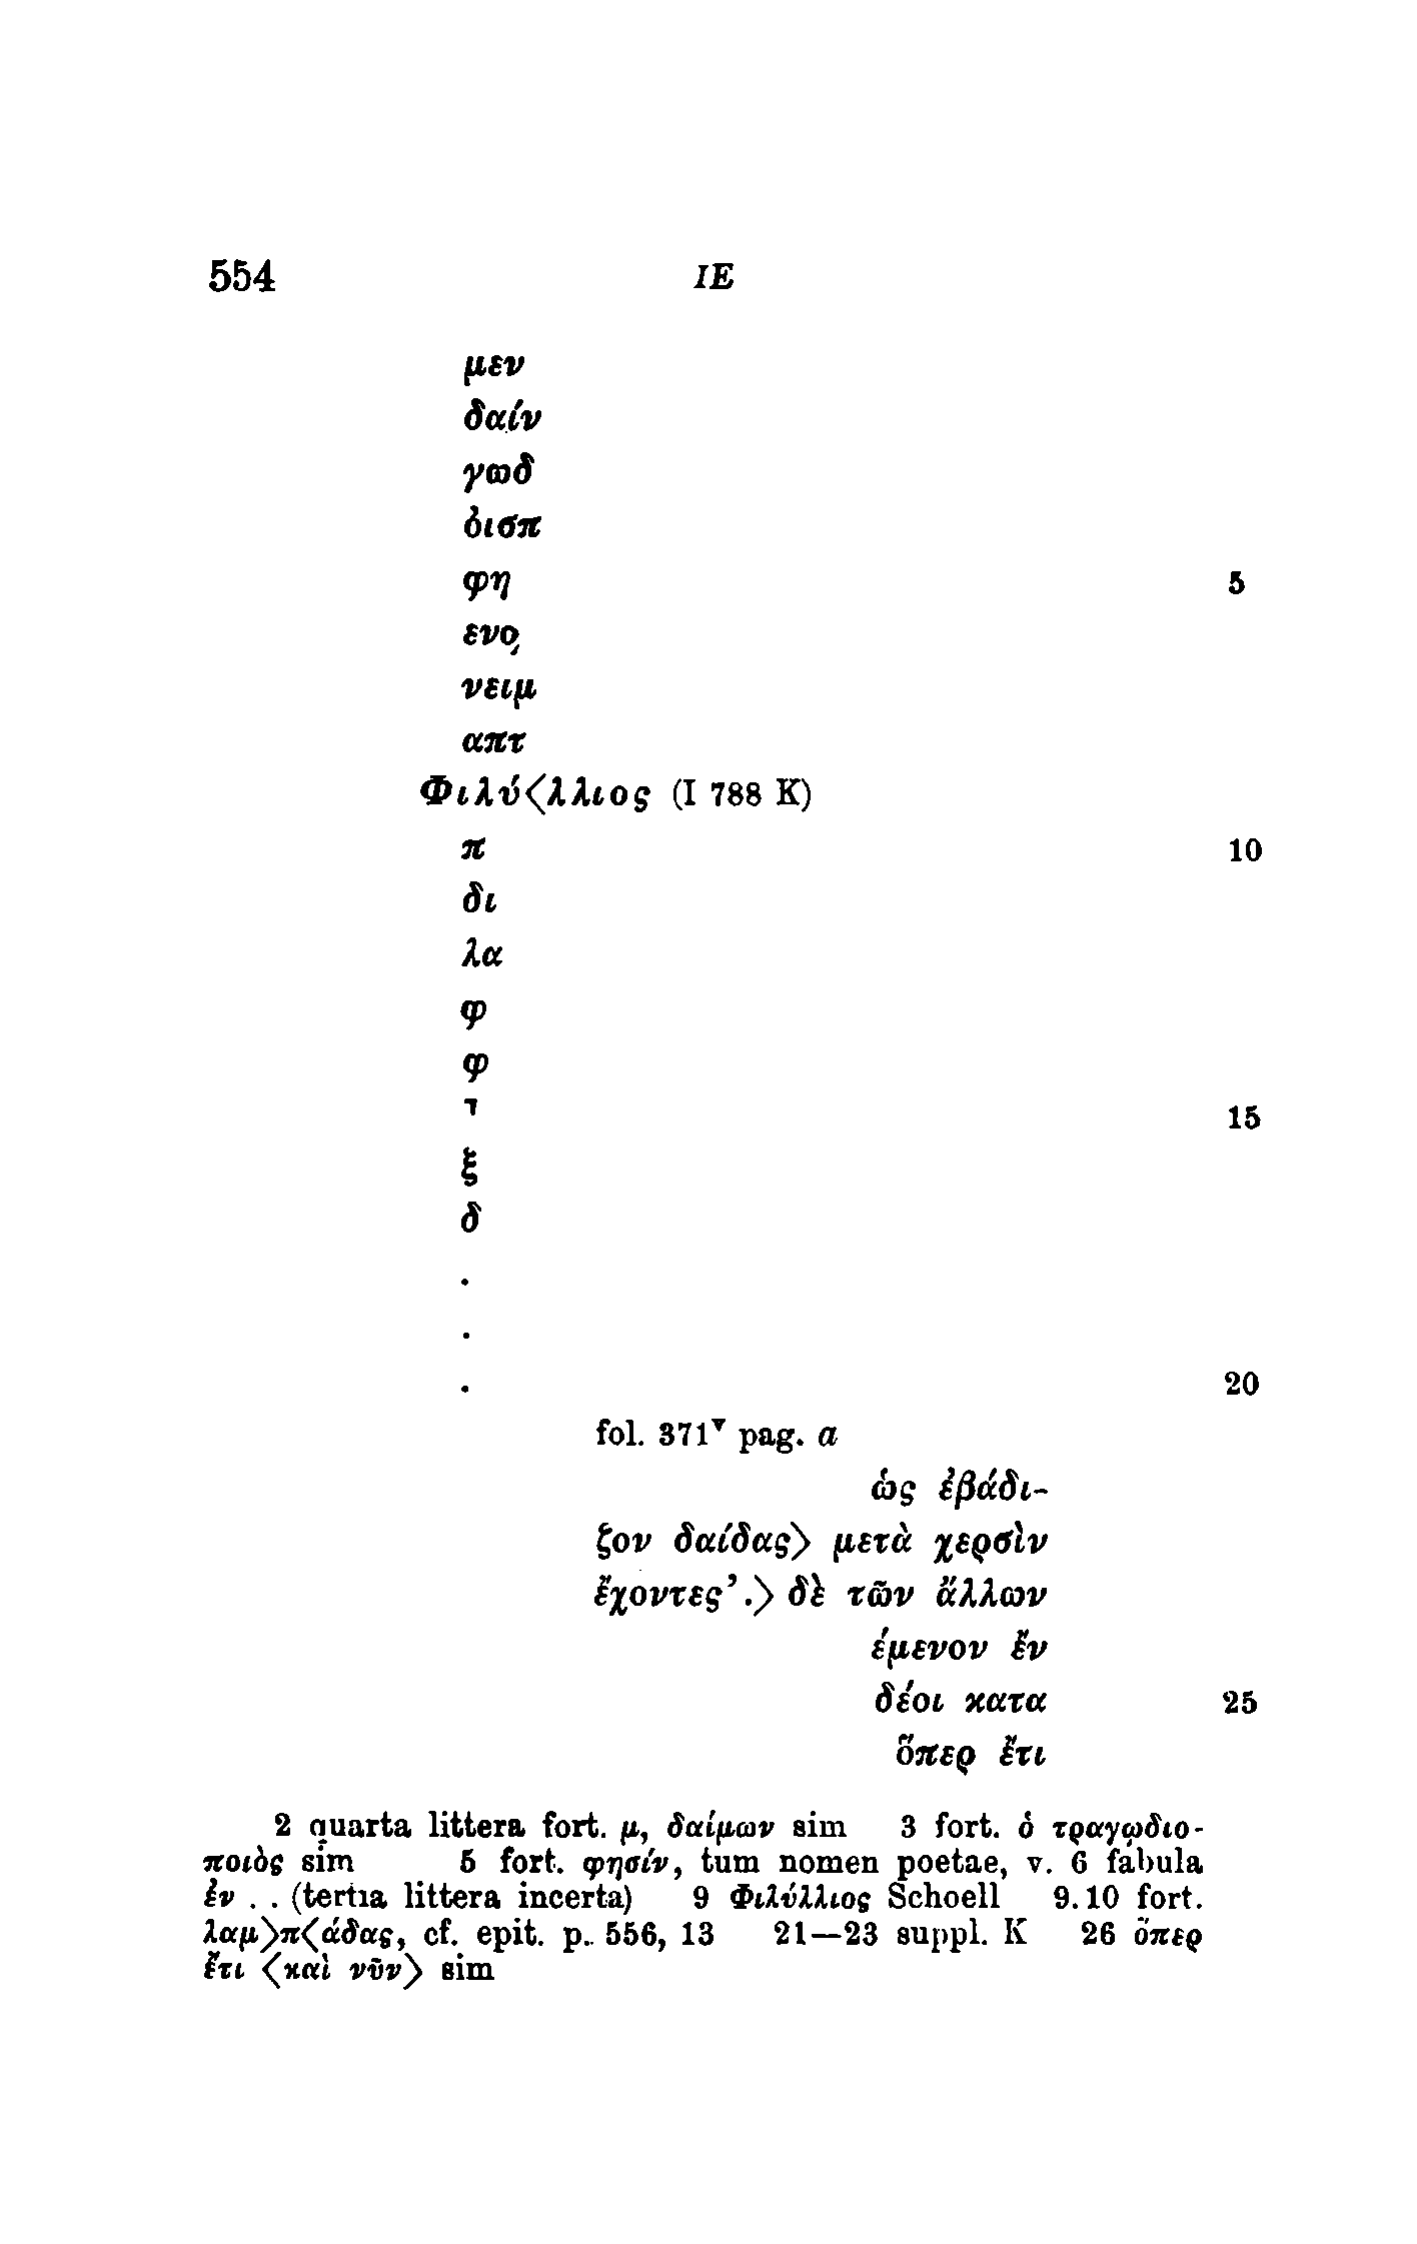 554 IE
μεν
δαίν
γωδ
ὁισπ
φη 5
ενο̗
νειμ
απτ
Φιλύ〈λλιος (I 788 K)
π 10
δι
λα
φ
φ
15
ξ
δ
.
.
. 20
fol. 371ᵛ pag. a
ὡς ἐβάδι-
ζον δαίδας〉 μετὰ χερσὶν
ἔχοντες’.〉 δὲ τῶν ἄλλων
έμενον ἔν
δέοι κατα 25
ὅπερ ἔτι
2 quarta littera fort. μ, δαίμων sim 3 fort. ὁ τραγῳδιο-
ποιὸς sim 5 fort. φησίν, tum nomen poetae, v. 6 fabula
ἐν . . (tertia littera incerta) 9 Φιλύλλιος Schoell 9. 10 fort.
λαμ〉π〈άδας, cf. epit. p. 556, 13 21—23 suppl. K 26 ὅπερ
ἔτι 〈καὶ νῦν〉 sim